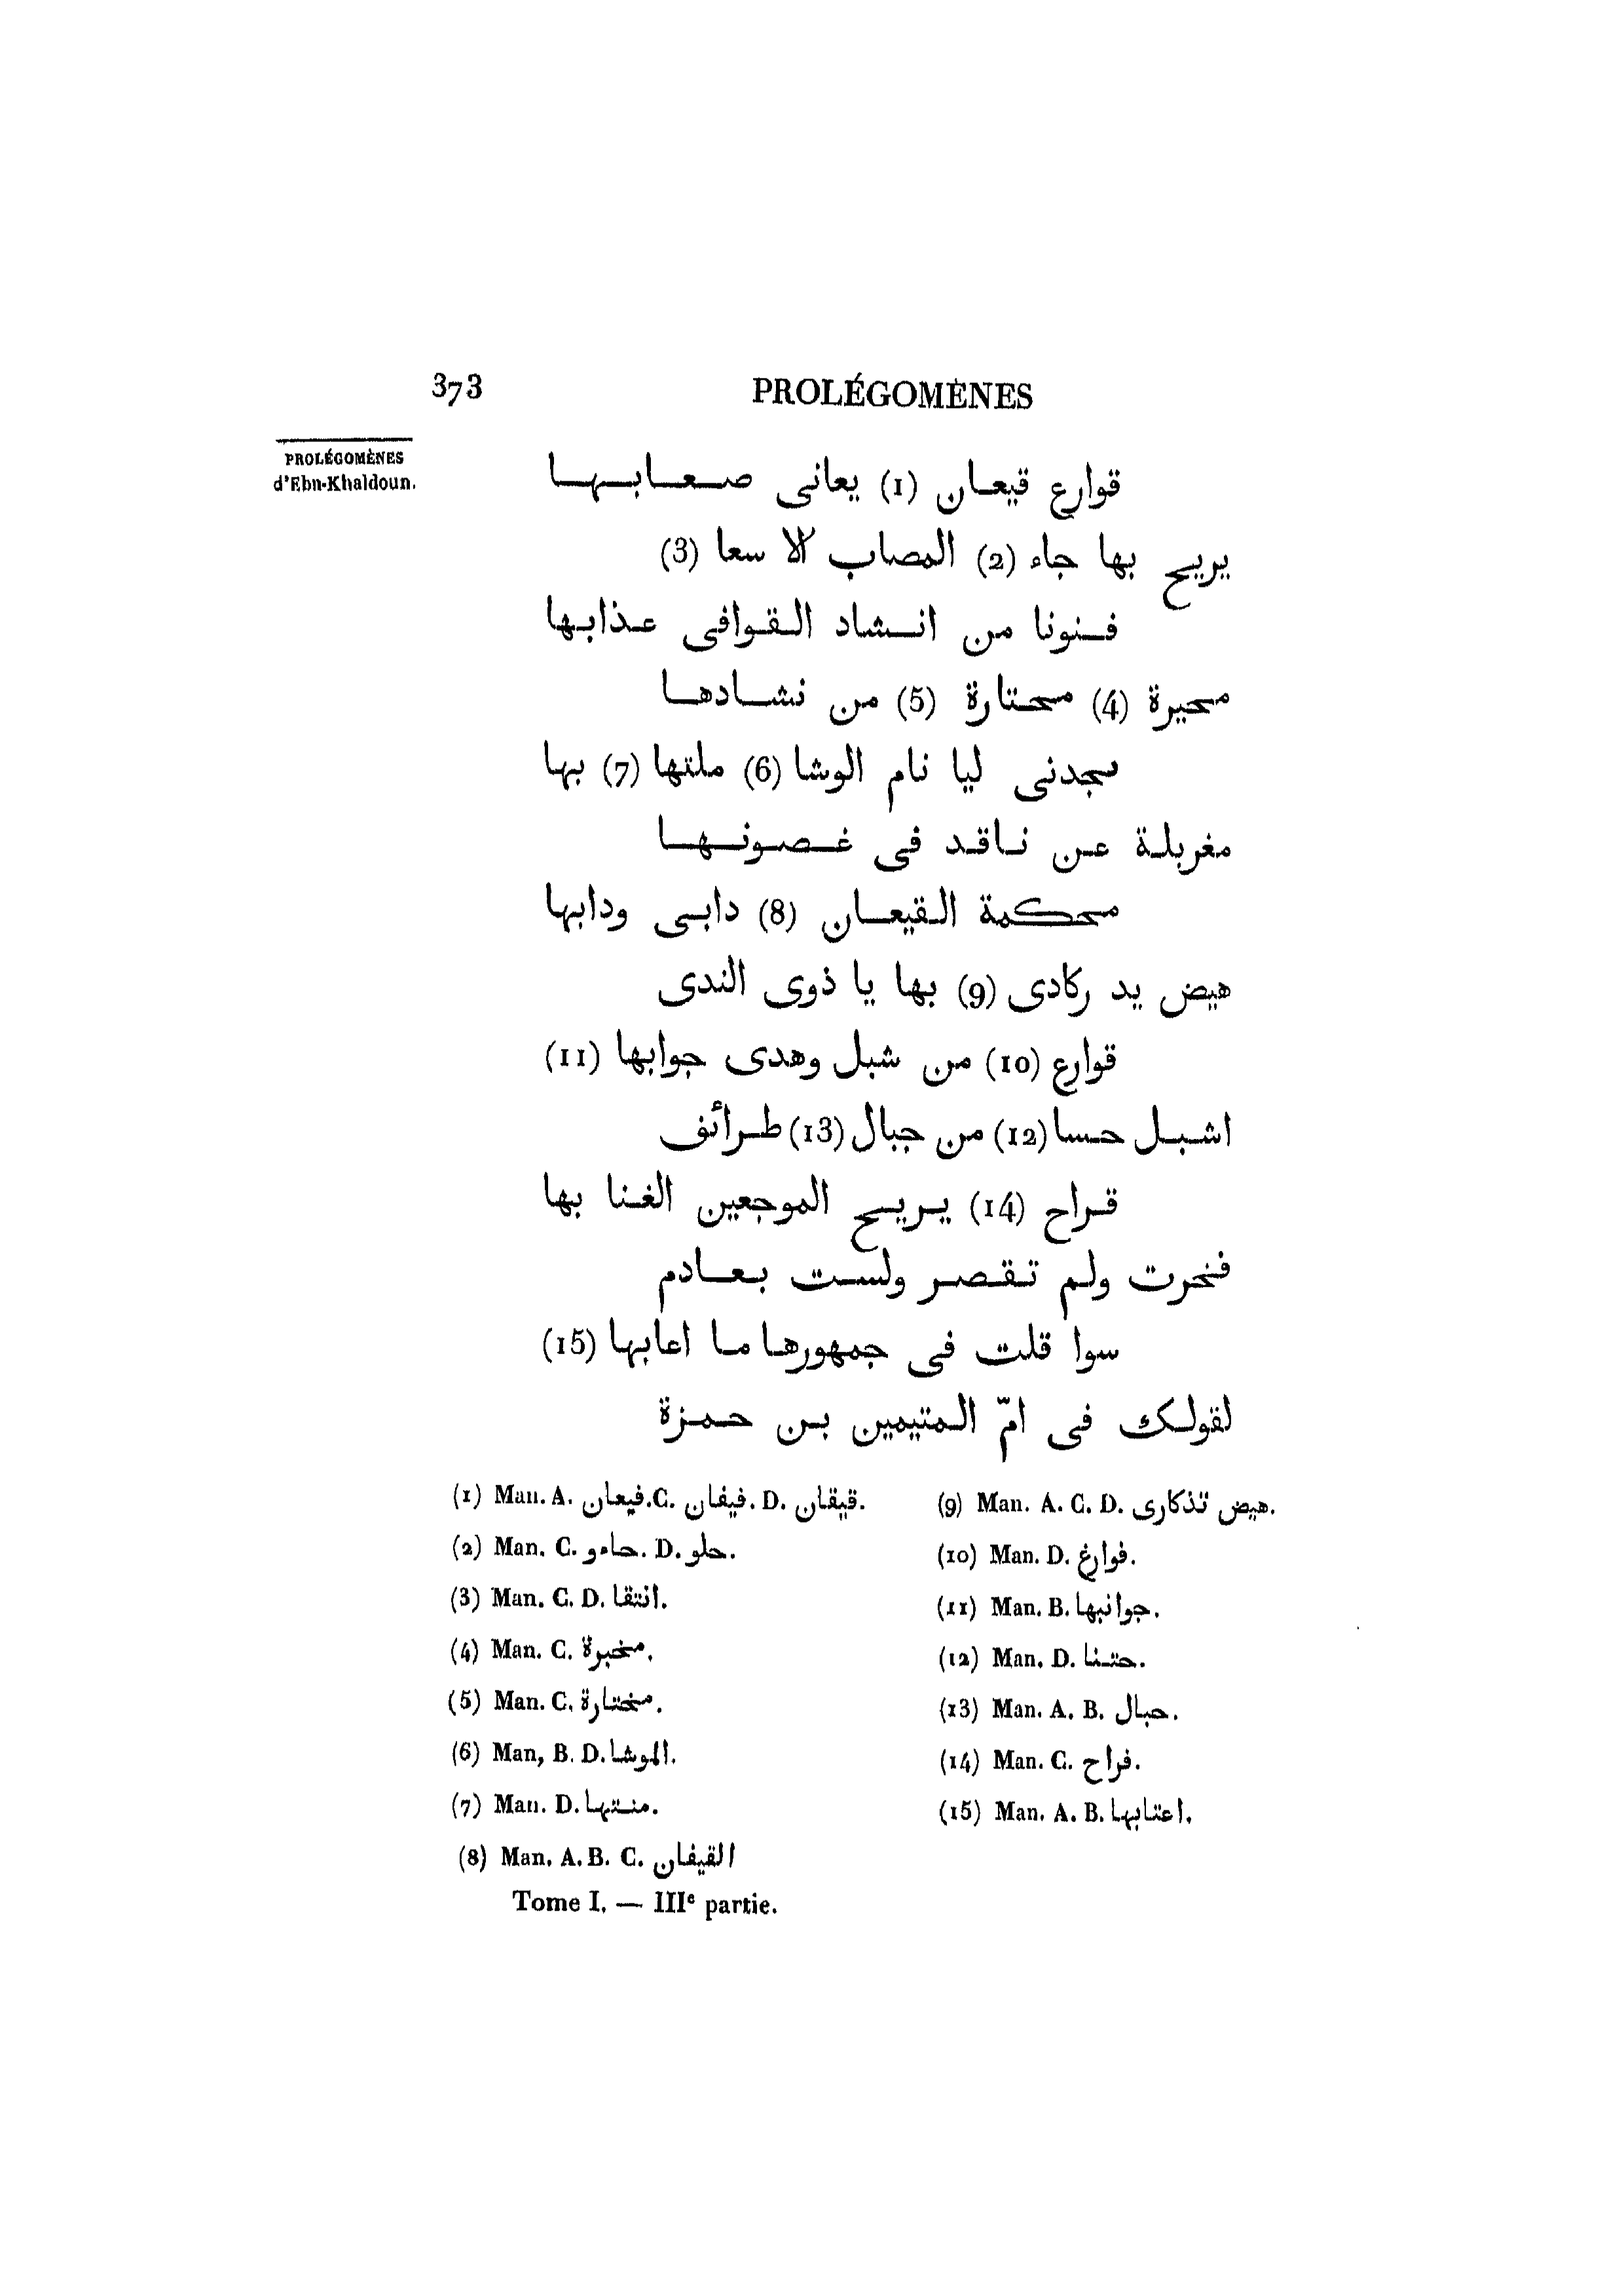 373
PROLÉGOMÈNES
PROLÉGOMÈNES
d'Ebn-Khaldoun.
قوارع قيعان (1) يعانى صعابها
يريح بها جاء (2) المصاب الا سعا (3)
فنونا من انشاد القوافى عذابها
محيرة (4) محتارة (5) من نشادها
تجدنى ليا نام الوشا (6) ملتها (7) بها
مغربلة عن ناقد فى غصونها
محكمة القيعان (8) دابى ودابها
هيض يد ركادى (9) بها يا ذوى الندى
قوارع (10) من شبل وهدى جوابها (11)
اشبل حسا (12) من جبال (13) طرائف
قراح (14) يريح الموجعين الغنا بها
فخرت ولم تقصر ولست بعادم
سوا قلت فى جمهورها ما اعابها (15)
لقولك فى امّ المتيمين بن حمزة
(1) Man. A. فيعان. C. فيفان. D. قيقان.
(2) Man. C. حاءو. D. حلو.
(3) Man. C. D. انتقا.
(4) Man. C. مخبرة.
(5) Man. C. مختارة.
(6) Man, B. D. الموشا.
(7) Man. D. منتها.
(8) Man. A. B. C. القيفان
(9) Man. A. C. D. هيض تذكارى.
(10) Man. D. فوارغ.
(11) Man. B. جوانبها.
(12) Man. D. حتنا.
(13) Man. A. B. حبال.
(14) Man. C. فراح.
(15) Man. A. B. اعتابها.
Tome I. — IIIe partie.